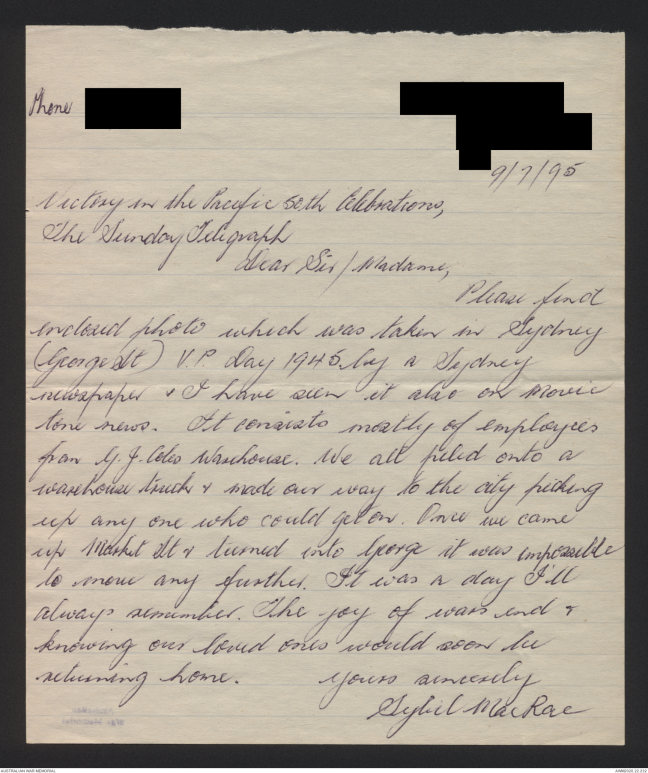 Phone
9/7/95
Victory in the Pacific 50th Celebrations,
The Sunday Telegraph
Dear Sir/Madame,
Please find
enclosed photo which was taken in Sydney
(George St) V.P. Day 1945 by a Sydney
newspaper & I have seen it also on Movie
tone news. It consists mostly of employees
from G.J. Coles Warehouse. We all piled onto a
warehouse truck & made our way to the city picking
up any one who could get on. Once we came
up Market St & turned into George it was impossible
to move any further. It was a day I'll
always remember. The joy of wars end &
knowing our loved ones would soon be
returning home. Yours sincerely
Sybil MacRae
AUSTRALIAN WAR MEMORIAL